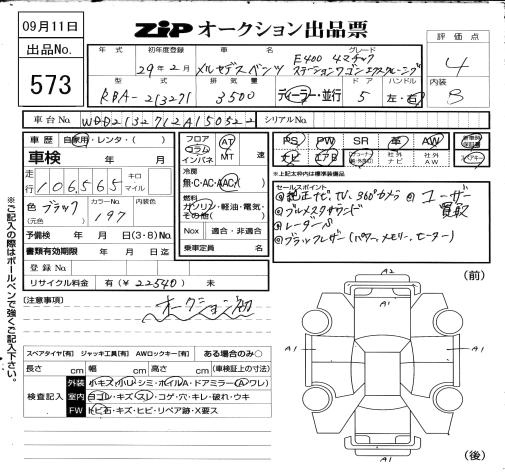 09月11日
出品No.
573
ZiP オークション出品票
評価点
4
内装
B
年式 初年度登録 車名 グレード
29年2月 メルセデスベンツ E400 4マチック
ステーションワゴン
型式 排気量 ドア ハンドル
RBA-213271 3500 ディーラー・並行 5 左・右
車台No. WDD2132712A150522 シリアルNo.
車歴 自家用・レンタ・( )
車検 年 月
走行 106565 キロ マイル
色 ブラック カラーNo. 197 内装色
(元色)
予備検 年 月 日(3・8)No.
書類有効期限 年 月 日
登録No.
リサイクル料金 有(¥22540) 未
フロア コラム インパネ AT MT 速
冷房 無・C・AC・AAC( )
燃料 ガソリン・軽油・電気・その他( )
Nox 適合・非適合
乗車定員 名
PS PW SR 革 AW
ナビ エアB 社外ナビ 社外AW
＊上記太枠内は標準装備品
セールスポイント
◎純正ナビ、TV、360°カメラ ◎ユーザー買取
◎ブルメスタサウンド
◎レーダーP
◎ブラックレザー(パワー、メモリー、ヒーター)
(注意事項)
オークション初
※ご記入の際はボールペンで強くご記入下さい。
スペアタイヤ[有] ジャッキ工具[有] AWロックキー[有] ある場合のみ○
長さ cm 幅 cm 高さ cm (車検証上の寸法)
検査記入
外装 小キズ・小U・シミ・ホイルA・ドアミラー(A・ワレ)
室内 ヨゴレ・キズ・スレ・コゲ・穴・キレ・破れ・ウキ
FW トビ石・キズ・ヒビ・リペア跡・X要ス
(前)
A2
A1
A1
A1
A1
(後)